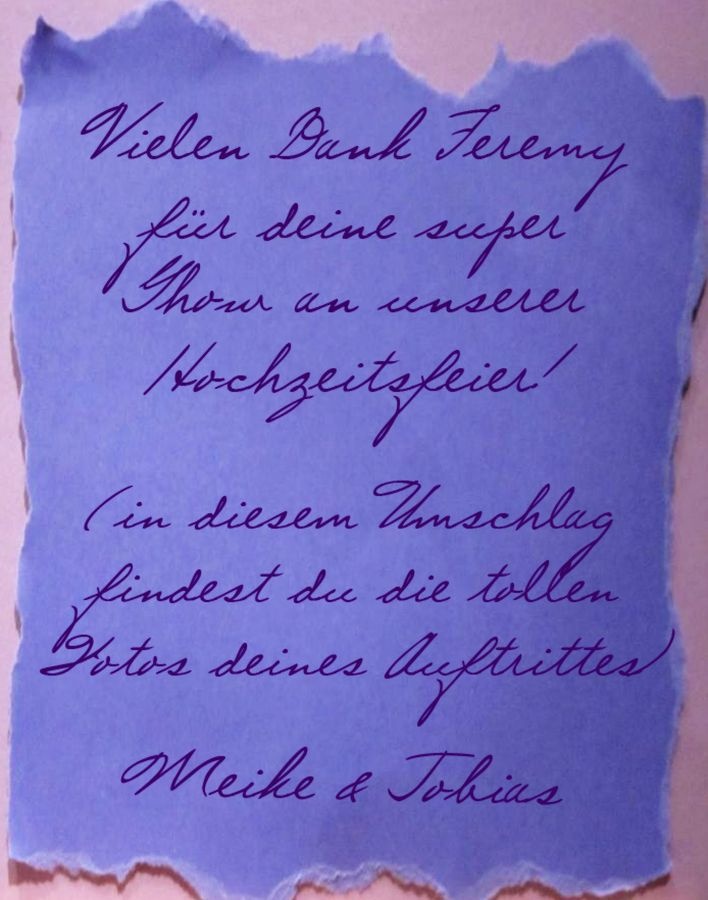 Vielen Dank Jeremy
für deine super
Show an unserer
Hochzeitsfeier!
(in diesem Umschlag
findest du die tollen
Fotos deines Auftrittes)
Meike & Tobias